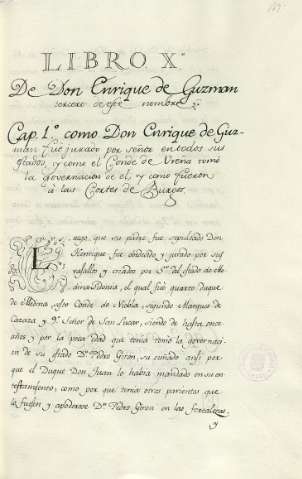 LIBRO X.º
De Don Enrique de Guzman
tercero de este nombre
Cap. 1.º como Don Enrique de Guz-
man fue jurado por señor en todos sus
estados, y como el Conde de Ureña tomó
la governacion de el, y como fueron
à las Cortes de Burgos.
Luego, que su padre fue sepultado Don
Henrique fue obedecido y jurado por sus
vasallos y criados por Sr. del estado de Me-
dinasidonia, el qual fue quarto duque
de Medina sesto Conde de Niebla segundo Marques de
Cazaza y Señor de San Lucar, siendo de hasta once
años y por la poca edad que tenia tomó la governaci-
on de su estado Dn. Pedro Giron, su cuñado ansi por
que el Duque Don Juan lo habia mandado en su
testamento, como por que tenia otros parientes que
le fuesen y apoderose Dn. Pedro Giron en las fortalezas
y